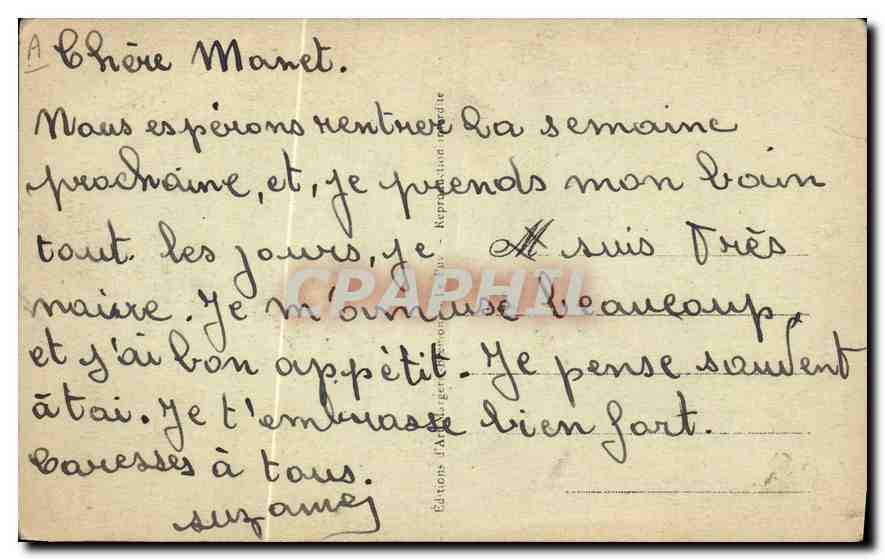 A
Chère Manet.
Nous espérons rentrer la semaine
prochaine, et, je prends mon bain
tout les jours, je suis Très
noire. Je m'amuse beaucoup,
et j'ai bon appétit. Je pense souvent
à toi. Je t'embrasse bien fort.
Caresses à tous.
suzanne
Éditions d'Art Margerit-Brémond, Le Puy - Reproduction interdite
CPAPHIL